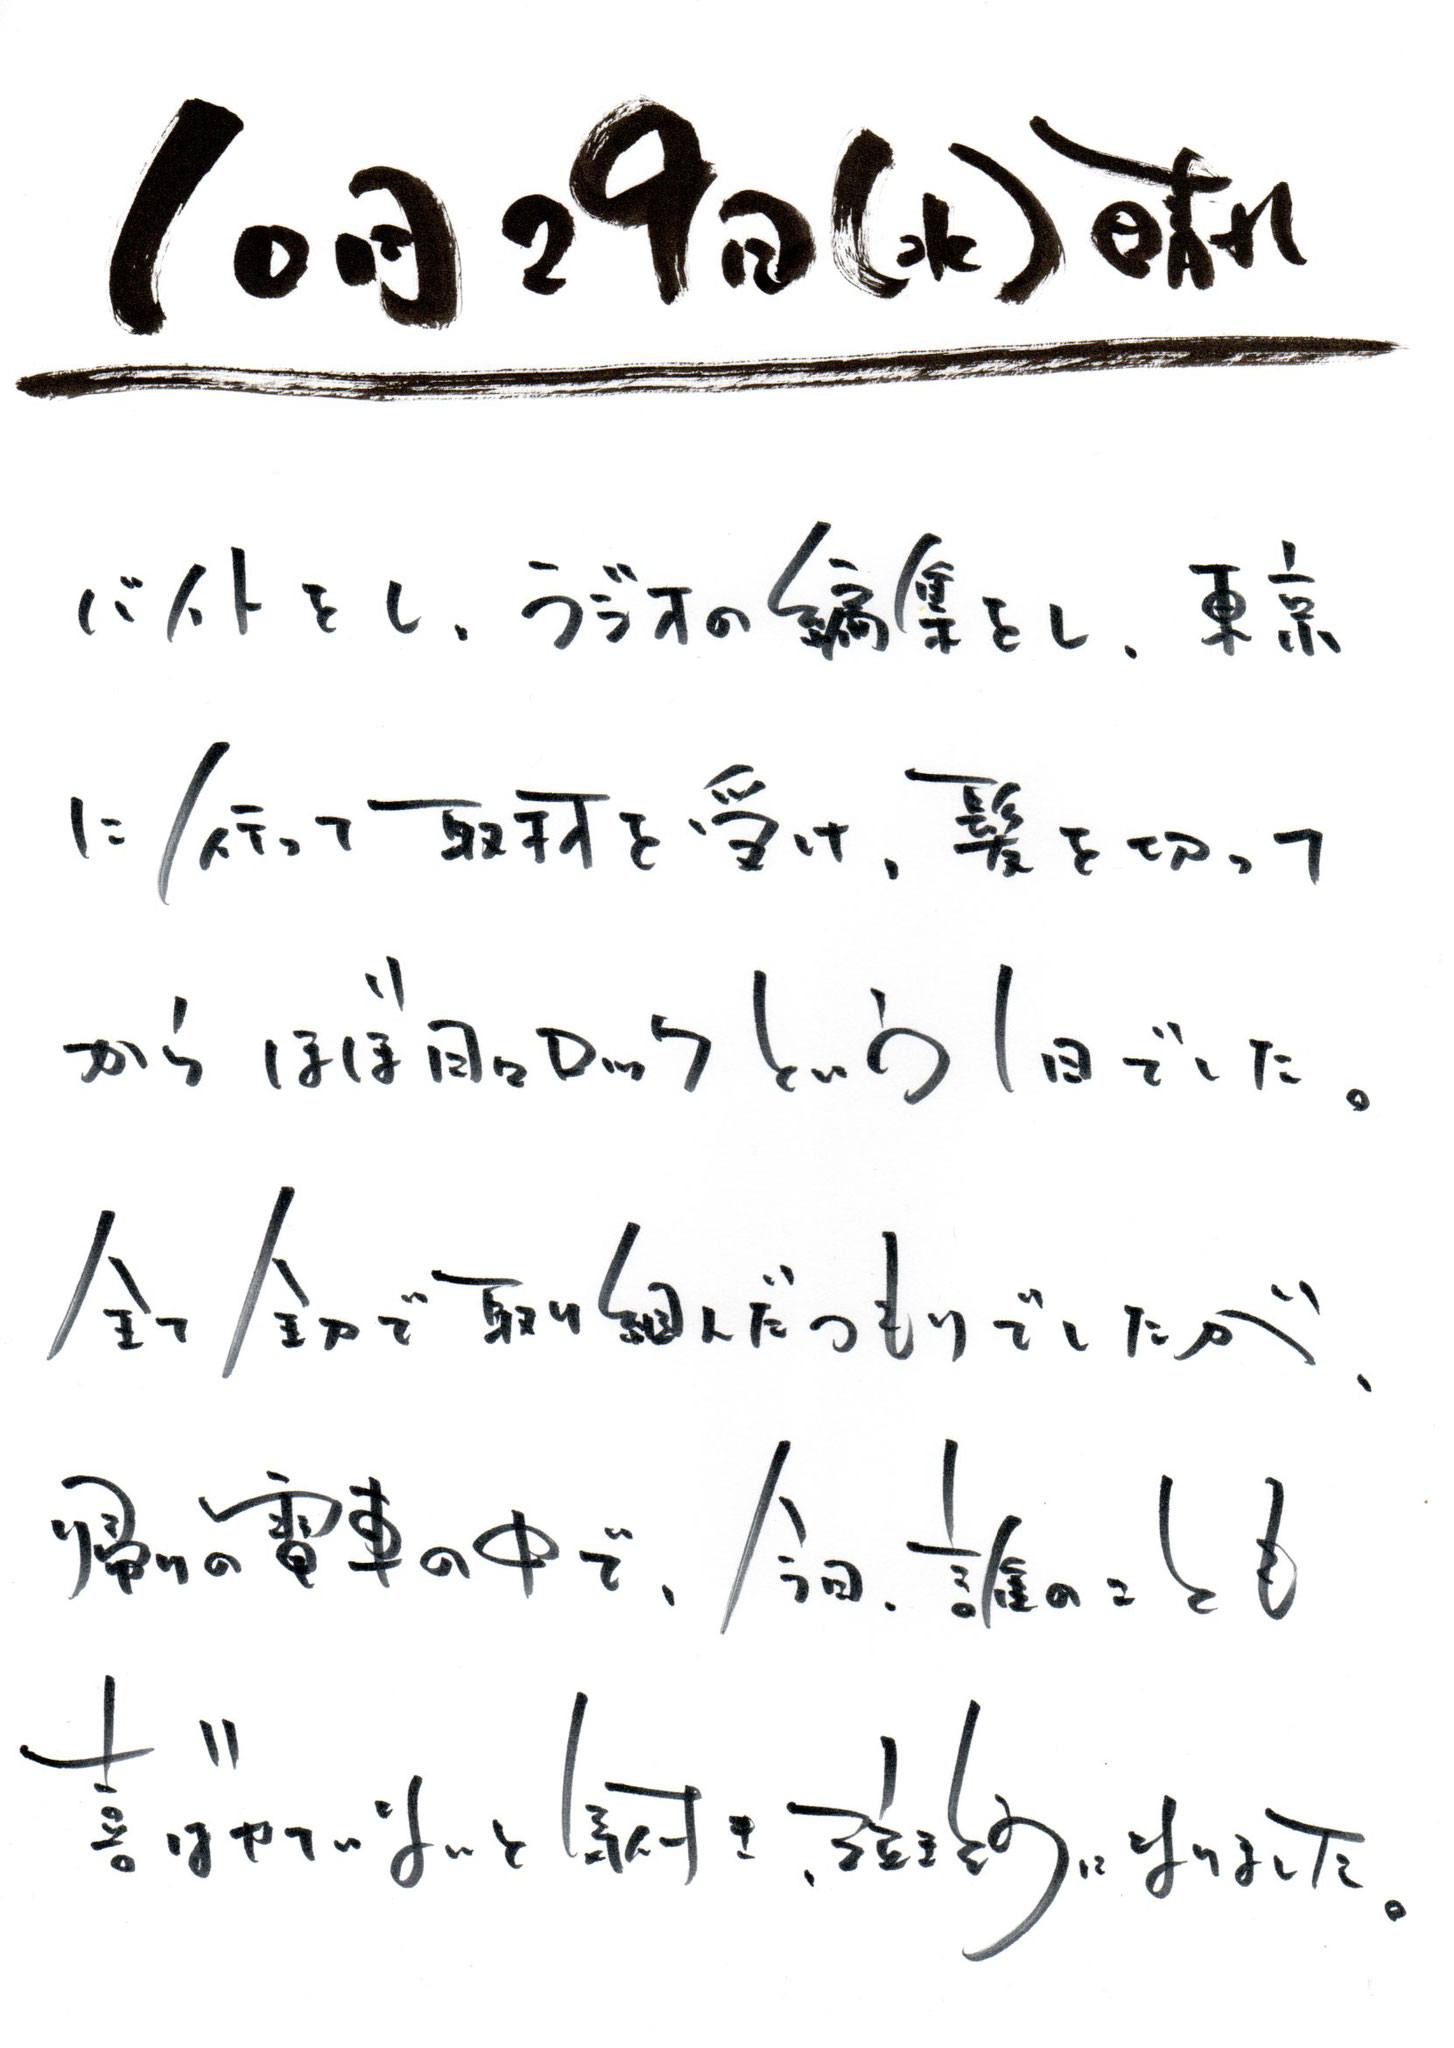 10月29日(水)晴れ
バイトをし、ラジオの編集をし、東京
に行って取材を受け、髪を切って
からほぼ目ロックという1日でした。
全て全力で取り組んだつもりでしたが、
帰りの電車の中で、今日、誰のことも
喜ばせていないと気付き、

になりました。